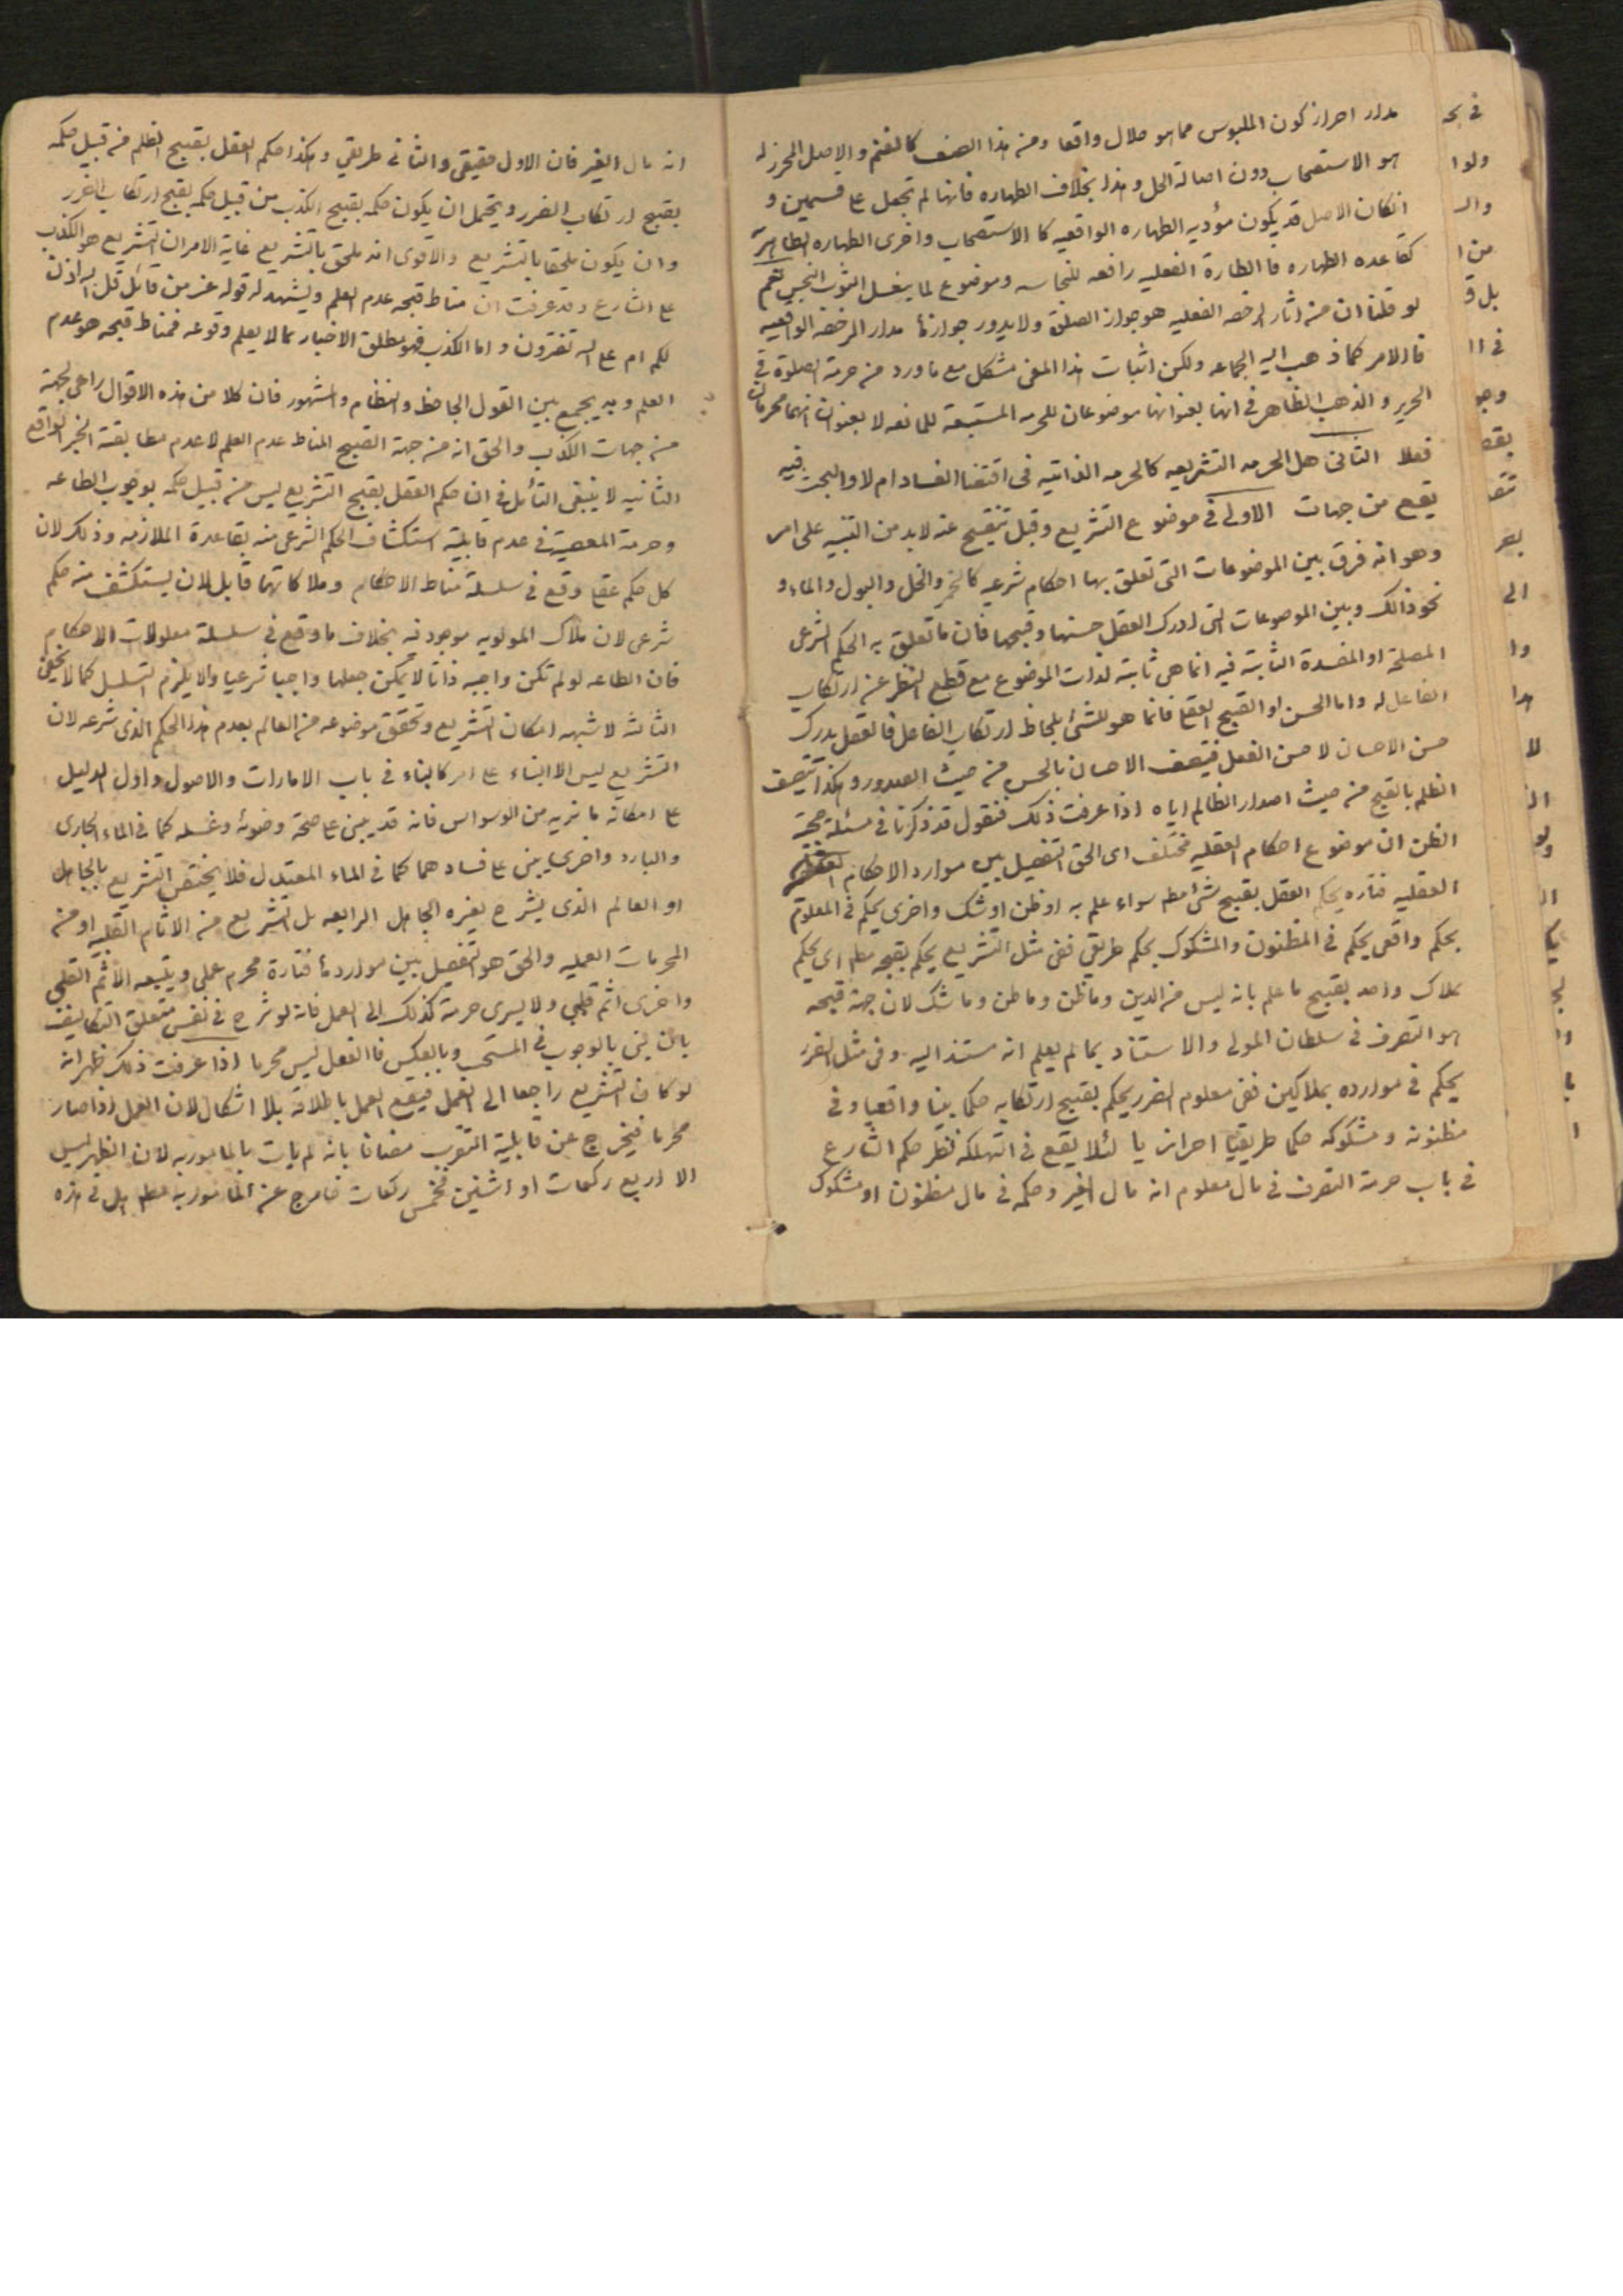 مدار احراز كون الملبوس مما هو حلال واقعا ومن هذا الصنف كالغنم والاصل المحرز له
هو الاستصحاب دون اصالة الحل وهذا بخلاف الطهاره فانها لم تجعل على قسمين و
انكان الاصل قد يكون مؤديه الطهاره الواقعيه كا الاستصحاب واخرى الطهاره الظاهرية
كقاعده الطهاره فا الطارة الفعليه رافعه للنجاسه وموضوع لما يغسل الثوب النجس نعم
لو قلنا ان من اثار الرخصه الفعليه هو جواز الصلوة ولا يدور جوازها مدار الرخصة الواقعيه
فالامر كما ذهب اليه الجماعه ولكن اثبات هذا المعنى مشكل مع ما ورد من حرمة الصلوة في
الحرير والذهب الظاهر في انها بعنوانها موضوعان للحرمه المستتبعة للمانعه لا بعنوان انهما محرمان
فعلا الثانى هل الحرمه التشريعه كالحرمه الذاتيه فى اقتضا الفساد ام لا والبحث فيه
يقع من جهات الاولى فى موضوع التشريع وقبل تنقيح عنه لابد من التنبيه على امر
وهو انه فرق بين الموضوعات التى تعلق بها احكام شرعيه كالخمر والخل والبول والماء و
نحو ذالك وبين الموصوعات التى ادرك العقل حسنها وقبحها فان ما تعلق به الحكم الشرعى
المصلحة او المفسدة الثابتة فيه انما هى ثابتة لذات الموضوع مع قطع النظر عن ارتكاب
الفاعل له واما الحسن او القبيح العقلي فانما هو للشئ بلحاظ ارتكاب الفاعل فالعقل يدرك
حسن الاحسان لا حسن الفعل فيتصف الاحسان بالحسن من حيث الصدور وهكذا يتصف
الظلم بالقبح من حيث اصدار الظالم اياه اذا عرفت ذلك فنقول قد ذكرنا في مسئلة حجية
الظن ان موضوع احكام العقليه مختلف اى الحق التفصيل بين موارد الاحكام
العقليه فتاره يحكم العقل بقبح شئ مطم سواء علم به او ظن او شك واخرى يحكم فى المعلوم
بحكم واقعى يحكم فى المظنون والمشكوك بحكم طريقي ففى مثل التشريع يحكم بقبحه مطم اى يحكم
بملاك واحد بقبح ما علم بانه ليس من الدين وما ظن وما ظن وما شك لان جهة قبحه
هو التصرف فى سلطان المولى والاستناد بما لم يعلم انه مستند اليه وفى مثل الضرر
يحكم فى موارده بملاكين ففى معلوم الضرر يحكم بقبح ارتكابه حكما بينا واقعيا و فى
مظنونه ومشكوكه حكما طريقيا احرازيا لئلا يقع فى التهلكه نظير حكم الشارع
فى باب حرمة التصرف فى مال معلوم انه مال الغير وحكمه فى مال مظنون او مشكوك
انه مال الغير فان الاول حقيقى والثانى طريقي وهكذا حكم العقل بقبح الظلم من قبيل حكمه
بقبح ارتكاب الضرر ويحتمل ان يكون حكمه بقبح الكذب من قبيل حكمه بقبح ارتكاب الضرر
وان يكون ملحقا بالتشريع والاقوى انه ملحق بالتشريع غاية الامر ان التشريع هو الكذب
على الشارع وقد عرفت ان مناط قبحه عدم العلم ويشهد له قوله عز من قائل قل الله اذن
لكم ام على الله تفترون واما الكذب فهو مطلق الاخبار بما لا يعلم وقوعه فمناط قبحه هو عدم
العلم وبه يجمع بين القول الجاحظ والنظام والمشهور فان كلا من هذه الاقوال راعى لجهة
من جهات الكذب والحق انه من جهة القبيح المناط عدم العلم لا عدم مطابقة الخبر الواقع
الثانيه لا ينبغى التأمل في ان حكم العقل بقبح التشريع ليس من قبيل حكمه بوجوب الطاعه
وحرمة المعصية فى عدم قابلية استكشاف الحكم الشرعى منه بقاعدة الملازمه وذلك لان
كل حكم عقلي وقع فى سلسلة مناط الاحكام وملاكاتها قابل لان يستكشف منه حكم
شرعى لان ملاك المولويه موجود فيه بخلاف ما وقع فى سلسلة معلولات الاحكام
فان الطاعه لو لم تكن واجبه ذاتا لا يمكن جعلها واجبا شرعيا والا يلزم التسلسل كما لا يخفى
الثالثة لا شبهه امكان التشريع وتحقق موضوعه من العالم بعدم هذا الحكم الذى شرعه لان
التشريع ليس الا البناء على امر كا لبناء فى باب الامارات والاصول وادل الدليل
على امكانه ما نريه من الوسواس فانه قد يبنى على صحة وضوئه وغسله كما فى الماء الجارى
والبارد واخرى يبنى على فسادهما كما فى الماء المعتدل فلا يختص التشريع بالجاهل
او العالم الذى يشرع بغيره الجاهل الرابعه هل التشريع من الاثام القلبيه او من
المحرمات العمليه والحق هو التفصيل بين مواردها فتارة محرم عملى ويتبعه الاثم القلبى
واخرى اثم قلبي ولا يسرى حرمة كذلك الى العمل فانه لو شرع فى نفس متعلق التكاليف
بان بنى بالوجوب فى المستحب وبالعكس فا الفعل ليس محرما اذا عرفت ذلك ظهر انه
لو كان التشريع راجعا الى العمل فيقع العمل باطلاقه بلا اشكال لان العمل اذا صار
محرما فيخرج عن قابلية التقرب مضافا بانه لم يات بالمامور به لان الظهر ليس
الا اربع ركعات او اثنين فخمس ركعات خارج عن المامور به مطم هل فى هذه